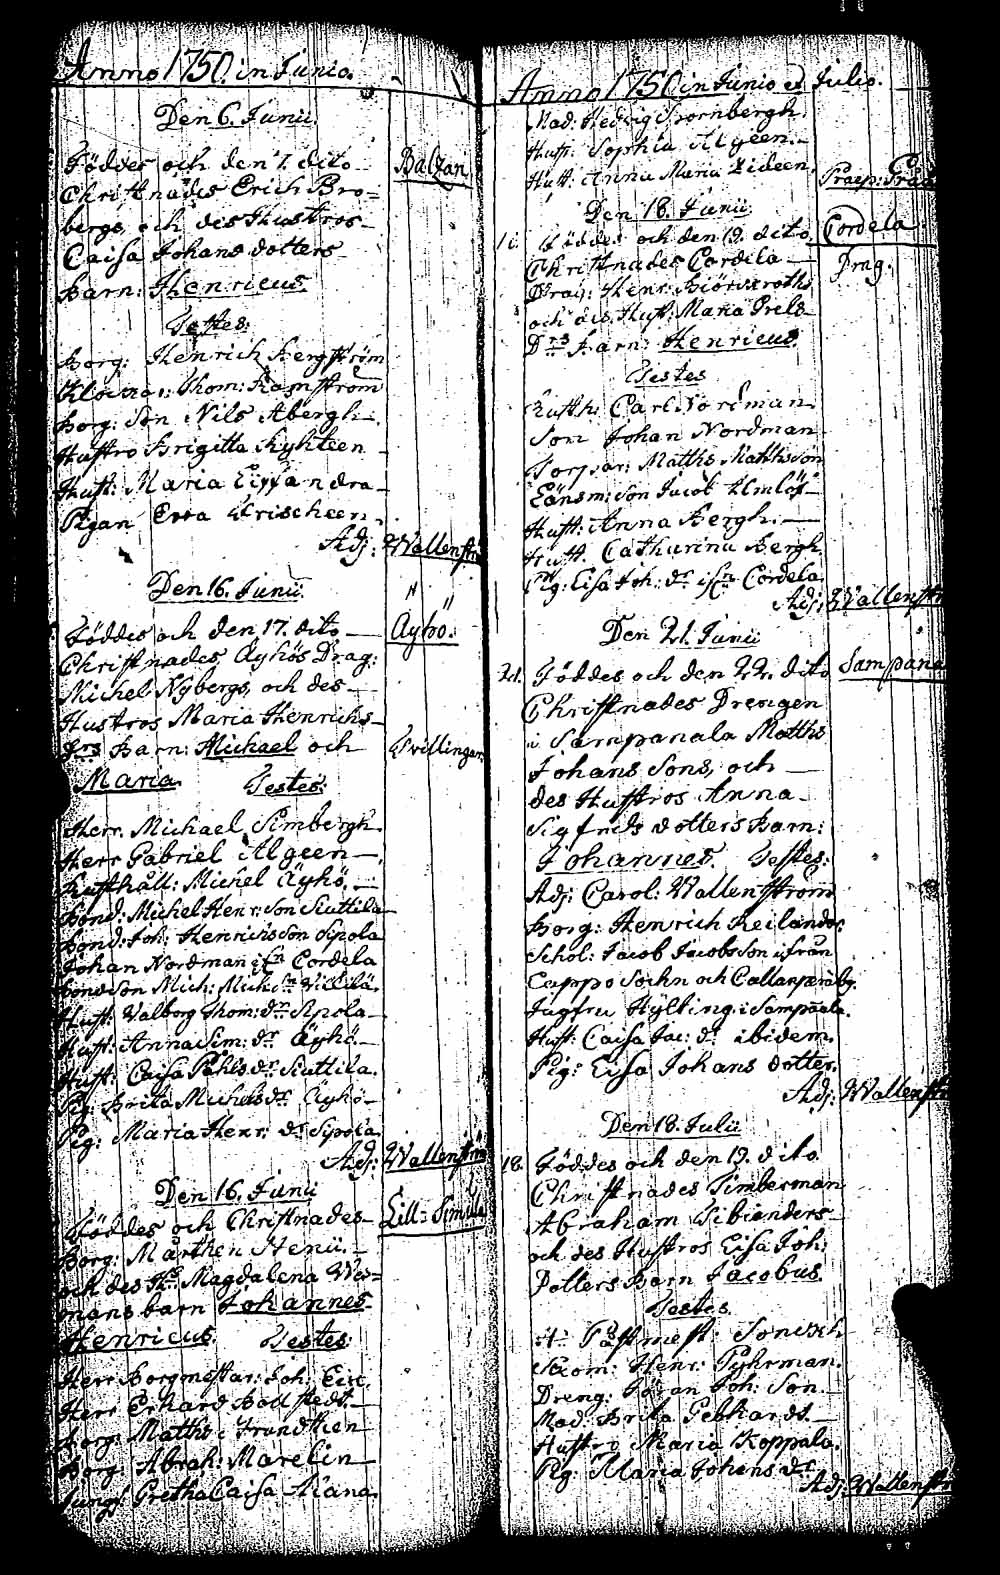 Anno 1750. in Junio.
Den 6. Junii.
Föddes och den 7. dito
Balzan
Christnades Erich Bro-
bergs och des Hustros
Caisa Johans dotters
Barn: Henricus.
Testes:
Borg: Henrich Bergström
Klockar: Thom: Ramström
Borg: Son Nils Abergh
Hustro Brigitta Kyhleen
Hust: Maria
Pigan
Adj: Wallenstr
Den 16. Junii
Föddes och den 17. dito
Äyhö.
Christnades Äyhös Drag:
Michel Nybergs och des
Hustros Maria Henrichs-
drs Barn: Michael och
Tvillingar
Maria. Testes:
Herr. Michael Simbergh.
Herr Gabriel Algeen
Rusthåll: Michel Äyhö.
Bond: Michel Henr: Son Siuttila
Bond: Joh: Henrichs Son Sipola
Johan Nordman ifn Cordela
Bondson Mich: Mich: Sn
Hust: Valborg Thom: dr Sipola
Hust: Anna Sim: dr Äyhö
Hust: Caisa Påhls dr Siuttila.
Pig: Brita Michels dr Äyhö
Pig: Maria Henr: dr Sipola
Adj: Wallenström
Den 16. Junii
Föddes och Christnades
Lill-Simola
Borg: Mårthen Henu.
och des Ho Magdalena Wes-
mans barn Johannes
Henricus. Testes:
Herr Borgmästar: Joh:
Herr Erhard Bollstedt
Borg: Matths
Borg: Abrah: Marelin
Jungf. Gretha Caisa
Anno 1750 in Junio et Julio.
Mad. Hedvig
Hust: Sophia Algeen.
Hust: Anna Maria Lideen
Præp:
Den 18. Junii
18. Föddes och den 19. dito
Cordela
Christnades Cordela
Drag.
Drag: Henr: Biörckroths
och des Hust: Maria Prels
Drs Barn: Henricus
Testes
Rusth: Carl Nordman
Son Johan Nordman
Torpar: Matths Mattsson
Länsm: Son Jacob
Hust: Anna Bergh.
Hust: Catharina Bergh
Pig: Lisa Joh: dr ifn Cordela
Adj: Wallenstr
Den 21. Junii
21. Föddes och den 22. dito
Sampana
Christnades Drengen
i Sampanala Matths
Johans Sons, och
des Hustros Anna
Sigfrids dotters Barn:
Johannes. Testes:
Adj: Carol: Wallenström
Borg: Henrich Keilander
Schol: Jacob Jacobsson ifrån
Cappo Sochn och Callanperä by.
Jugfru Hylting i Sampaala.
Hust: Caisa Jac: dr ibidem.
Pig: Lisa Johans dotter.
Adj: Wallenstr
Den 18. Julii
18. Föddes och den 19. dito
Christnades Timberman
Abraham Sibianders
och des Hustros Lisa Joh:
Dotters Barn Jacobus.
Testes.
Hr Påstmest:
Henr: Pyhrman.
Dreng: Johan Joh: Son.
Mad. Brita Gebhardt
Hustro Maria Koppala.
Pig: Maria Johans dr
Adj: Wallenstr